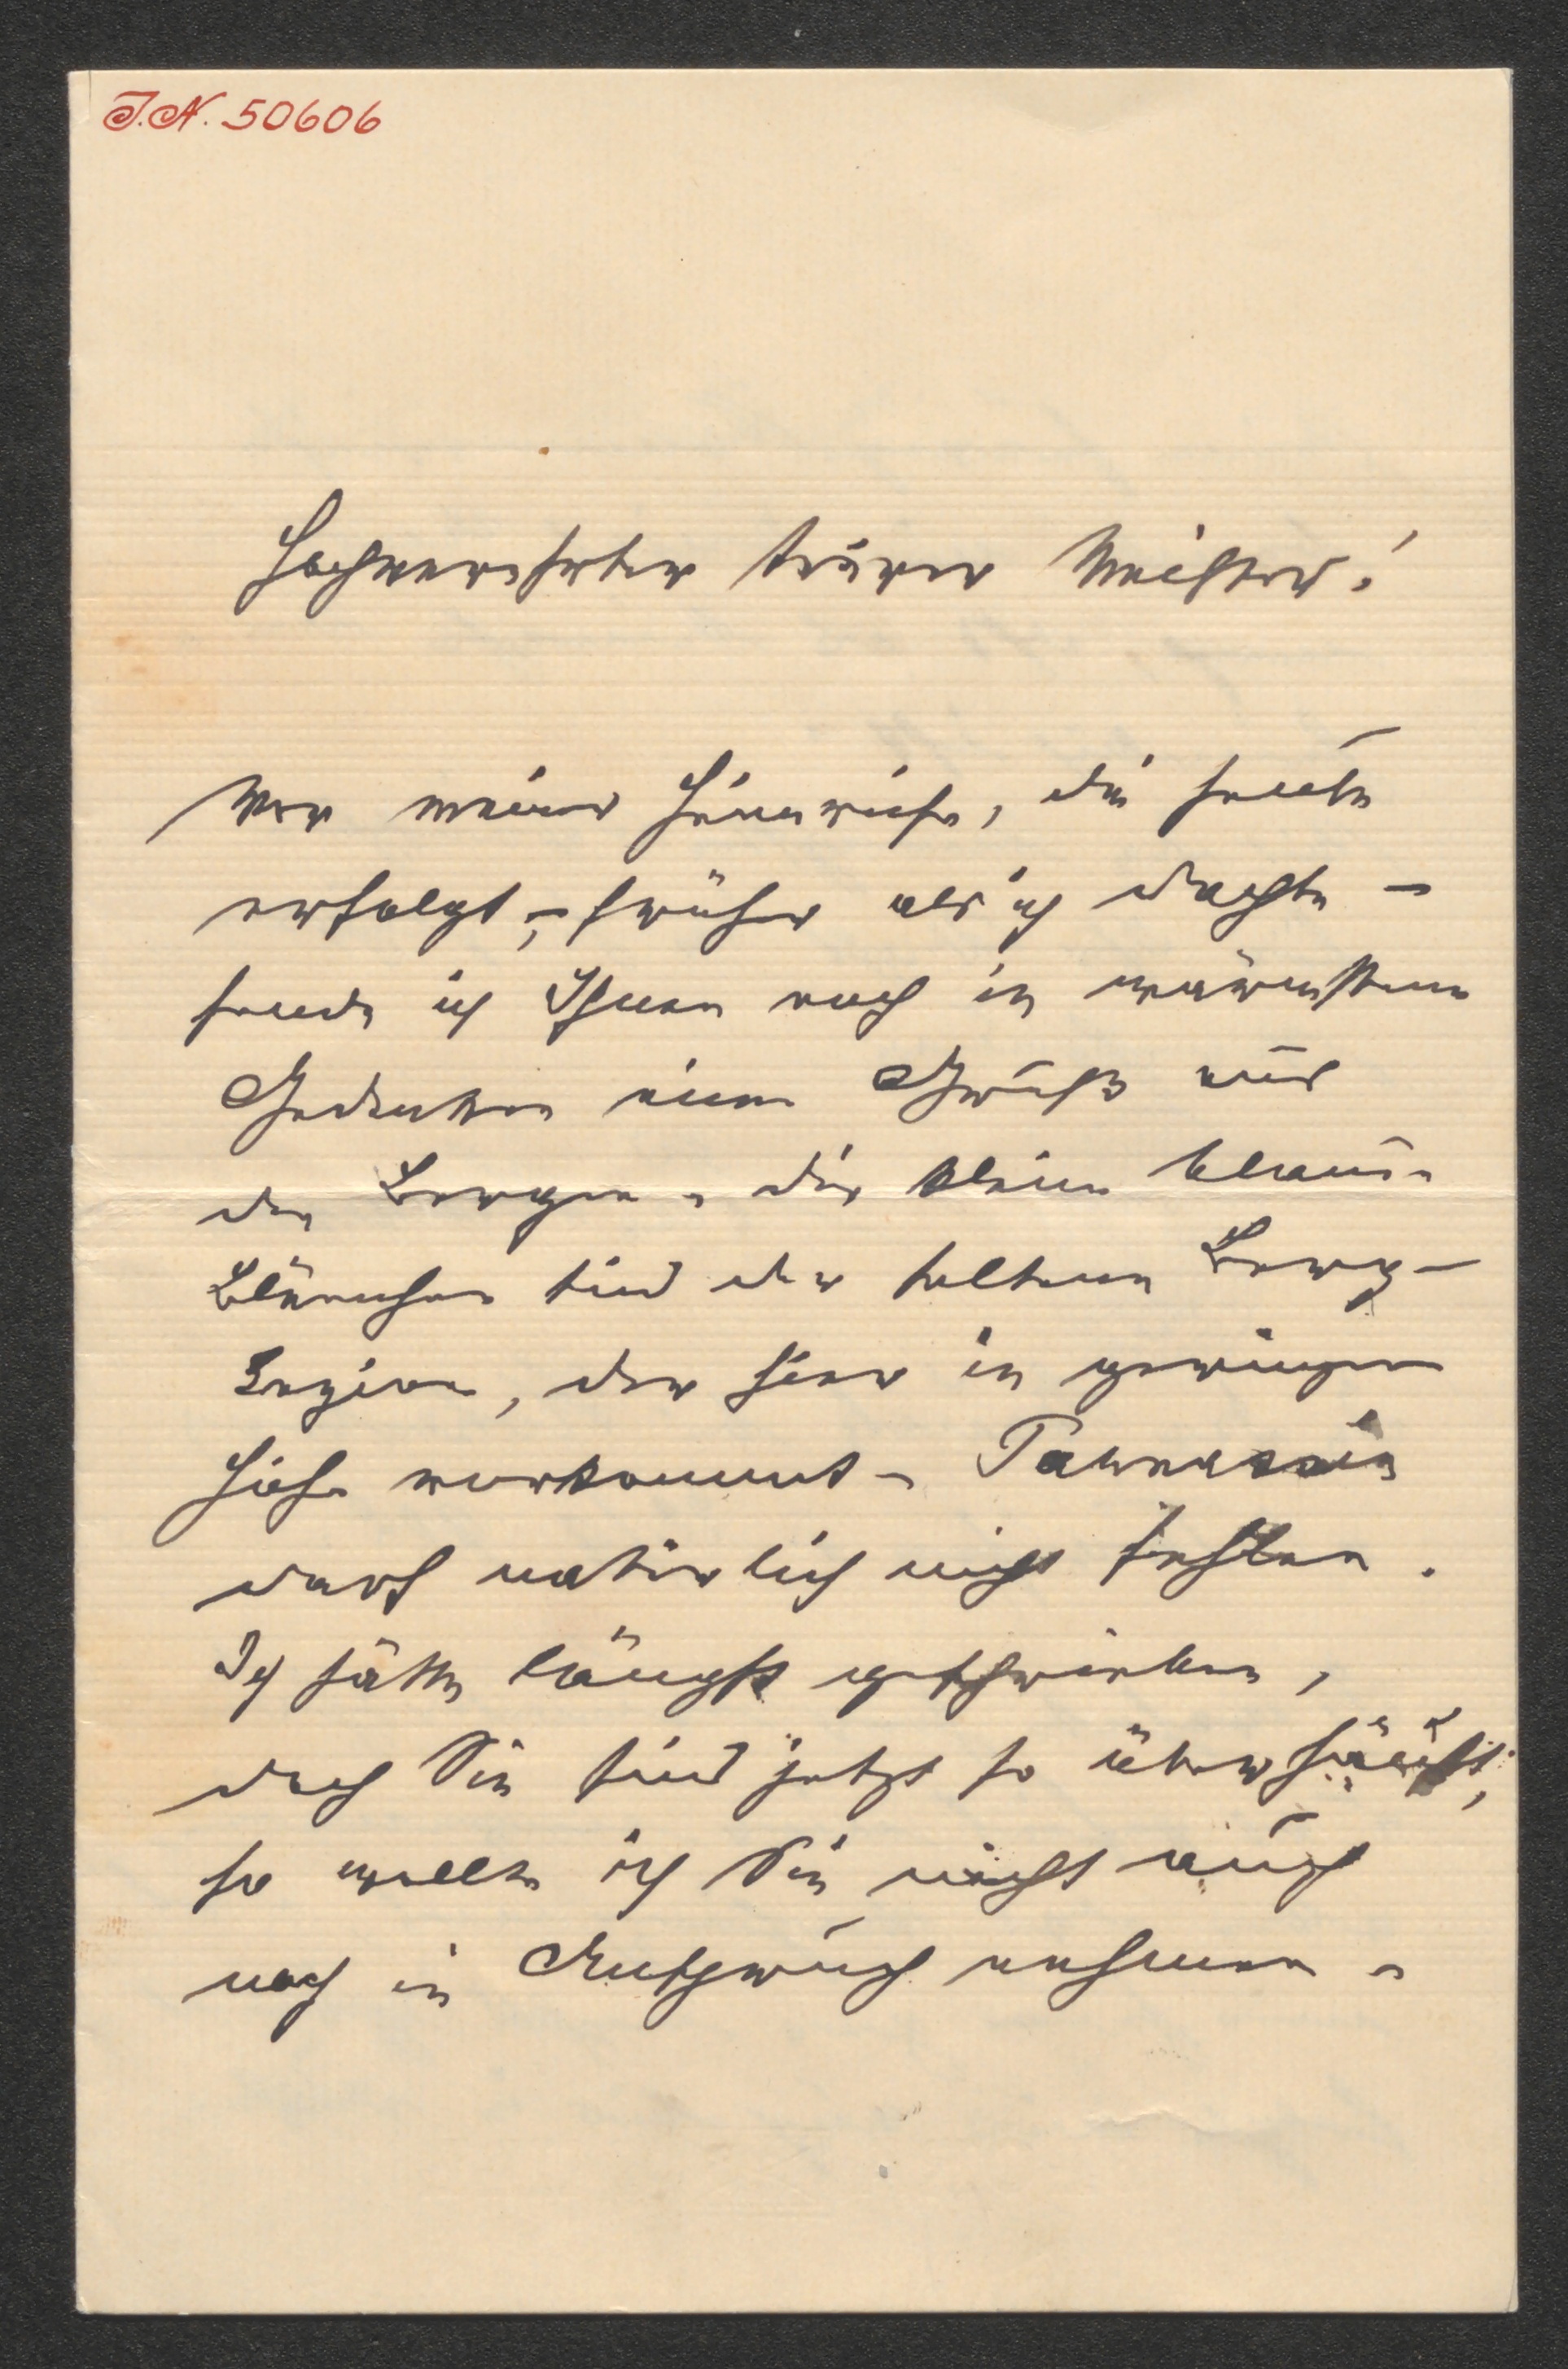 J.N. 50606
Hochverehrter teurer Meister!
Vor meiner Heimreise, die heute
erfolgt, – früher als ich dachte –
sende ich Ihnen noch in wärmstem
Gedenken einen Gruß aus
den Bergen – die kleinen blauen
Blümchen sind der seltene Berg-
Enzian, der hier in geringer
Höhe vorkommt –
darf natürlich nicht fehlen.
Ich hätte längst geschrieben,
doch Sie sind jetzt so überhäuft,
so wollte ich Sie nicht auch
noch in Anspruch nehmen –